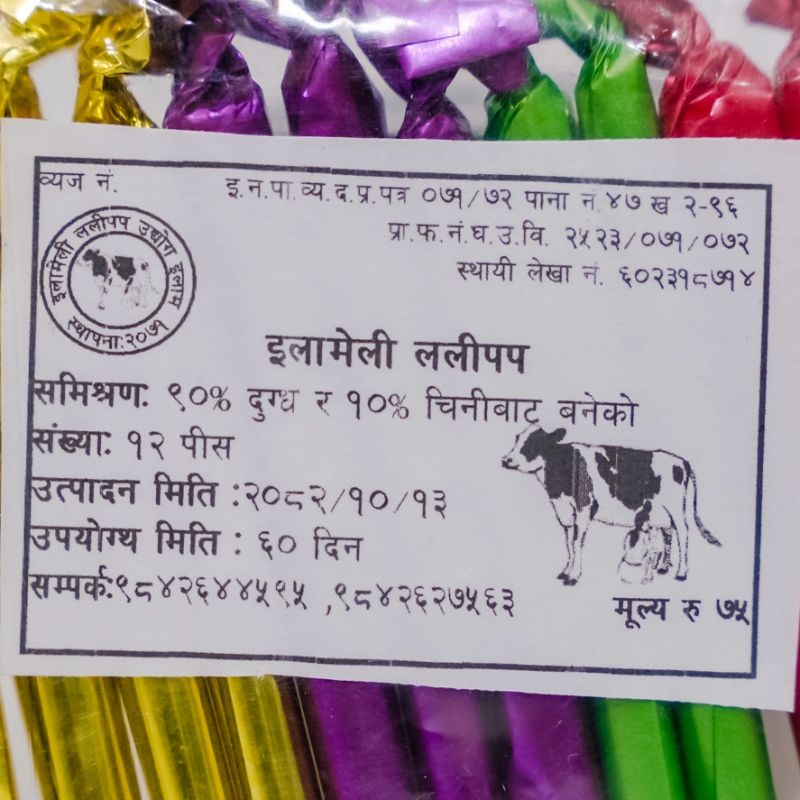 व्यज नं.
इ.न.पा.व्य.द.प्र.पत्र ०७१/७२ पाना नं.४७ ख २-९६
प्रा.फ.नं.घ.उ.वि. २५२३/०७१/०७२
स्थायी लेखा नं. ६०२३१८७१४
इलामेली ललीपप उद्योग इलाम
स्थापना:२०७१
इलामेली ललीपप
समिश्रण: ९०% दुग्ध र १०% चिनीबाट बनेको
संख्या: १२ पीस
उत्पादन मिति :२०८२/१०/१३
उपयोग्य मिति : ६० दिन
सम्पर्क:९८४२६४४५९५ ,९८४२६२७५६३
मूल्य रु ७५